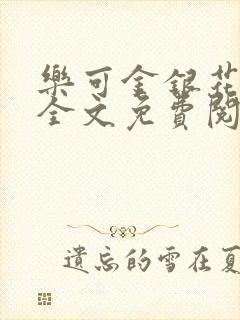 樂可金銀花
全文免費閱
遺忘的雪在夏